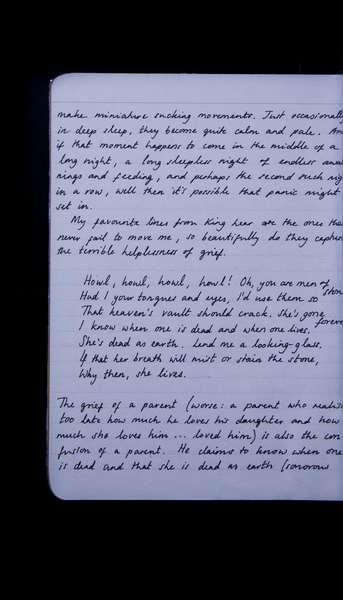 make miniature sucking movements. Just occasionally
in deep sleep, they become quite calm and pale. An
if that moment happens to come in the middle of a
long night, a long sleepless night of endless
nings and feeding, and perhaps the second such
in a row, well then it's possible that panic might
set in.
My favourite lines from King Lear are the ones
never fail to move me, so beautifully do they
the terrible helplessness of grief.
Howl, howl, howl, howl! Oh, you are men of
stone
Had I your tongues and eyes, I'd use them so
That heaven's vault should crack. She's gone
forever
I know when one is dead and when one lives.
She's dead as earth. Lend me a looking-glass.
If that her breath will mist or stain the stone,
Why then, she lives.
The grief of a parent (worse: a parent who
too late how much he loves his daughter and how
much she loves him ... loved him) is also the con
fusion of a parent. He claims to know when one
is dead and that she is dead as earth (sonorous